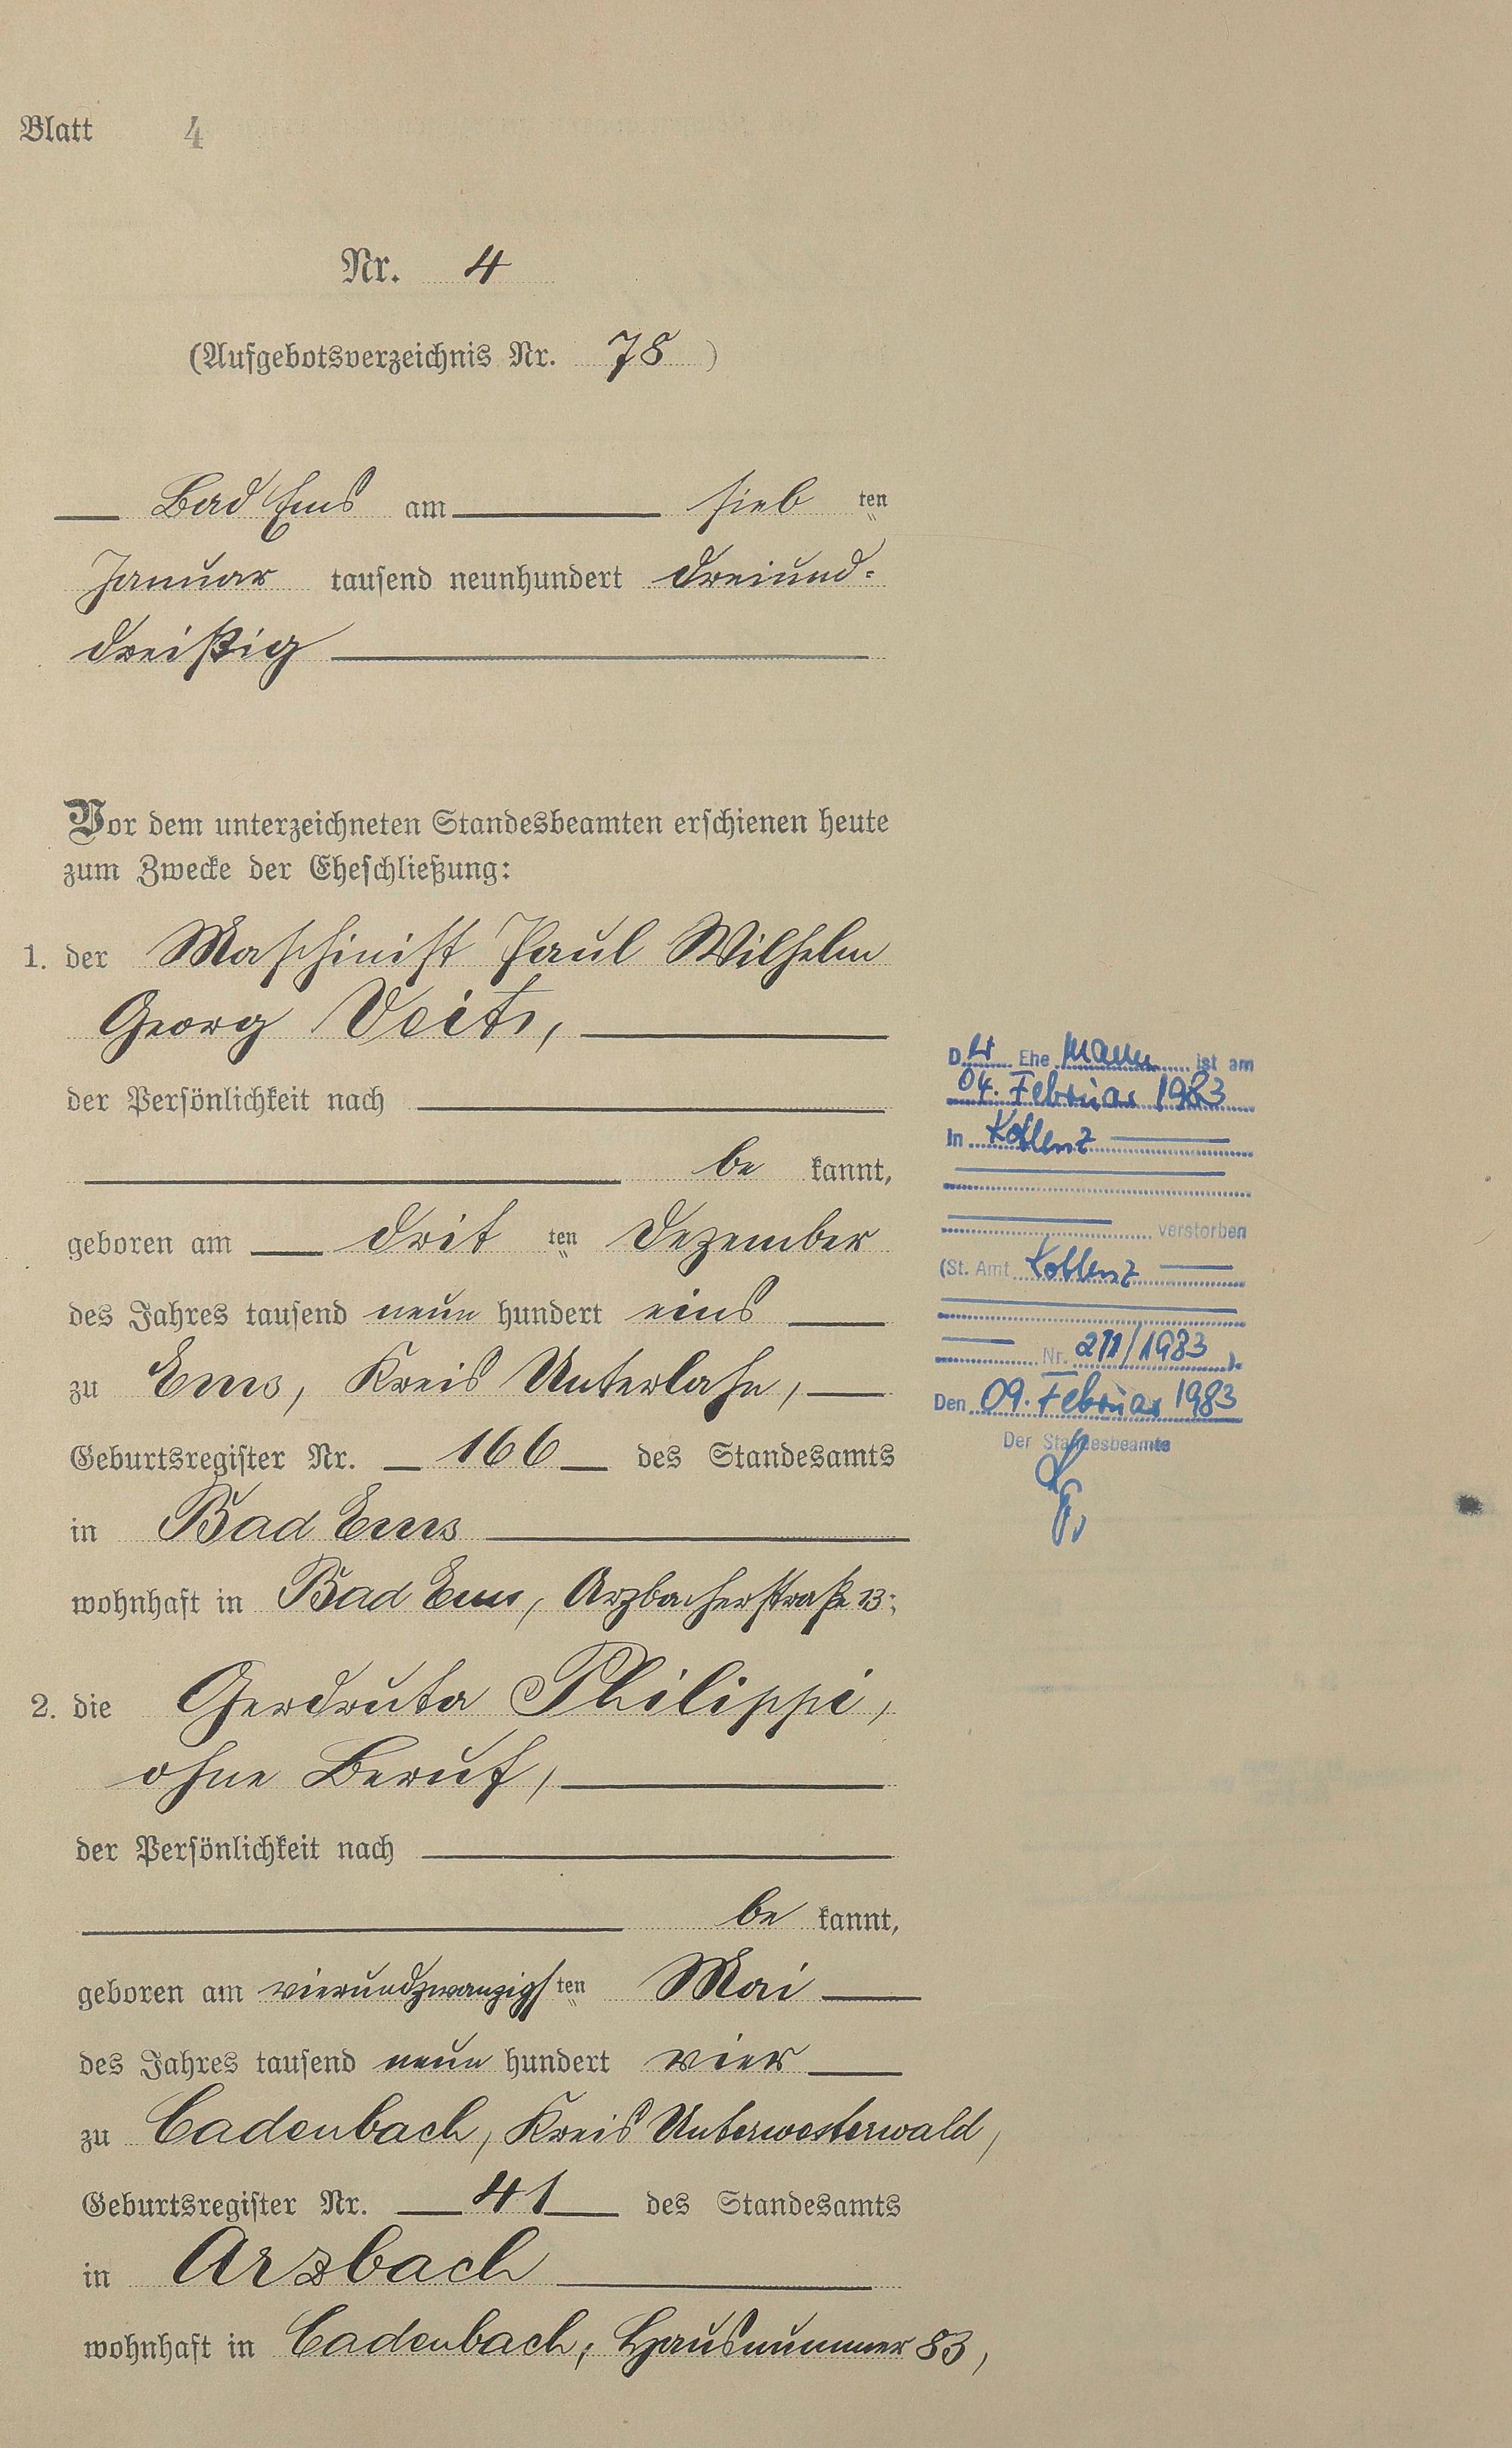 Blatt 4
Nr. 4
(Aufgebotsverzeichnis Nr. 78)
Bad Ems am sieb ten
Januar tausend neunhundert dreiund=
dreißig
Vor dem unterzeichneten Standesbeamten erschienen heute
zum Zwecke der Eheschließung:
1. der Maschinist Paul Wilhelm
Georg Veit,
der Persönlichkeit nach
be kannt,
geboren am drit ten Dezember
des Jahres tausend neun hundert eins
zu Ems, Kreis Unterlahn,
Geburtsregister Nr. 166 des Standesamts
in Bad Ems
wohnhaft in Bad Ems, Arzbacherstraße 13;
2. die Gerdruta Philippi,
ohne Beruf,
der Persönlichkeit nach
be kannt,
geboren am vierundzwanzigs ten Mai
des Jahres tausend neun hundert vier
zu Cadenbach, Kreis Unterwesterwald,
Geburtsregister Nr. 41 des Standesamts
in Arzbach
wohnhaft in Cadenbach, Hausnummer 83,
Der Ehe mann ist am
04. Februar 1983
In Koblenz
verstorben
(St. Amt Koblenz
Nr. 271/1983 ).
Den 09. Februar 1983
Der Standesbeamte